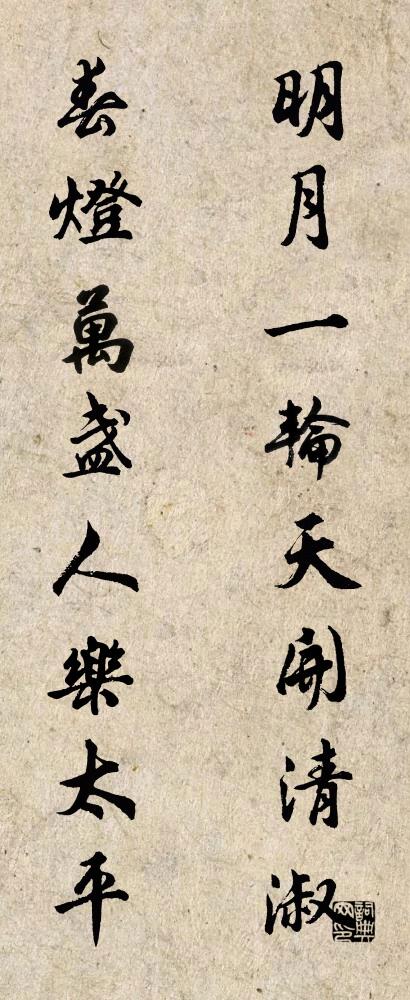 明月一輪天開清淑
春燈萬盞人樂太平
詞典网印